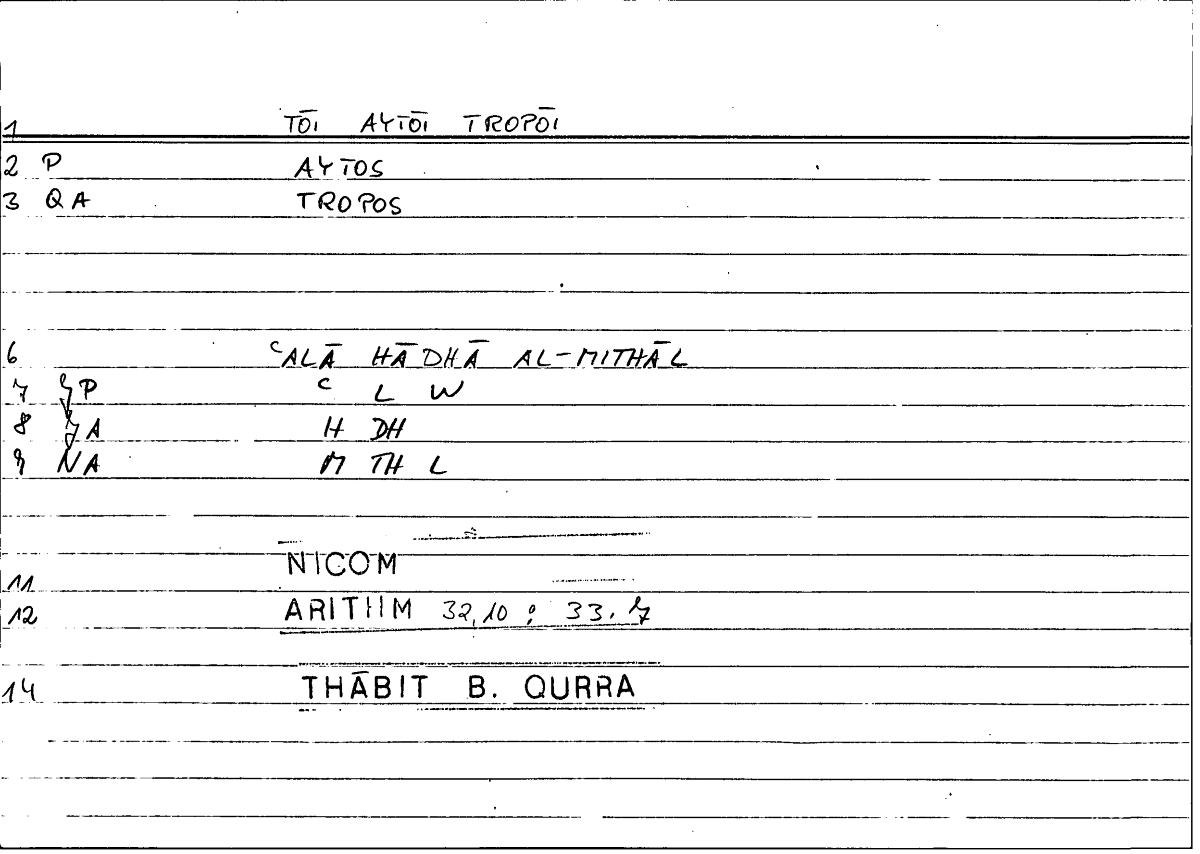 1 TŌI AYTŌI TROPŌI
2 P AYTOS
3 QA TROPOS
6 ʿALĀ HĀDHĀ AL-MITHĀL
7 P ʿ L W
8 A H DH
9 NA M TH L
11 NICOM
12 ARITHM 32,10 ; 33.7
14 THĀBIT B. QURRA